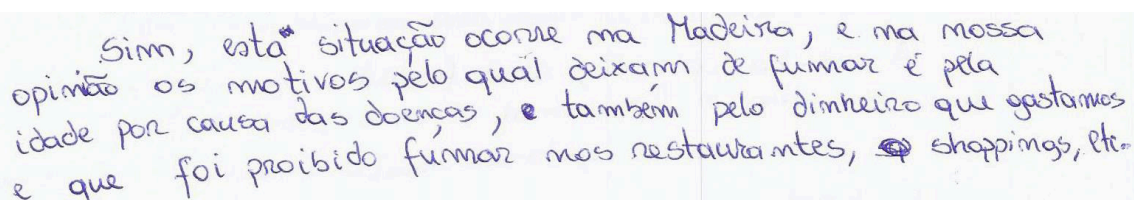 Sim, esta situação ocorre na Madeira, e na nossa
opinião os motivos pelo qual deixam de fumar é pela
idade por causa das doenças, e também pelo dinheiro que gastamos
e que foi proibido fumar nos restaurantes, shoppings, etc.